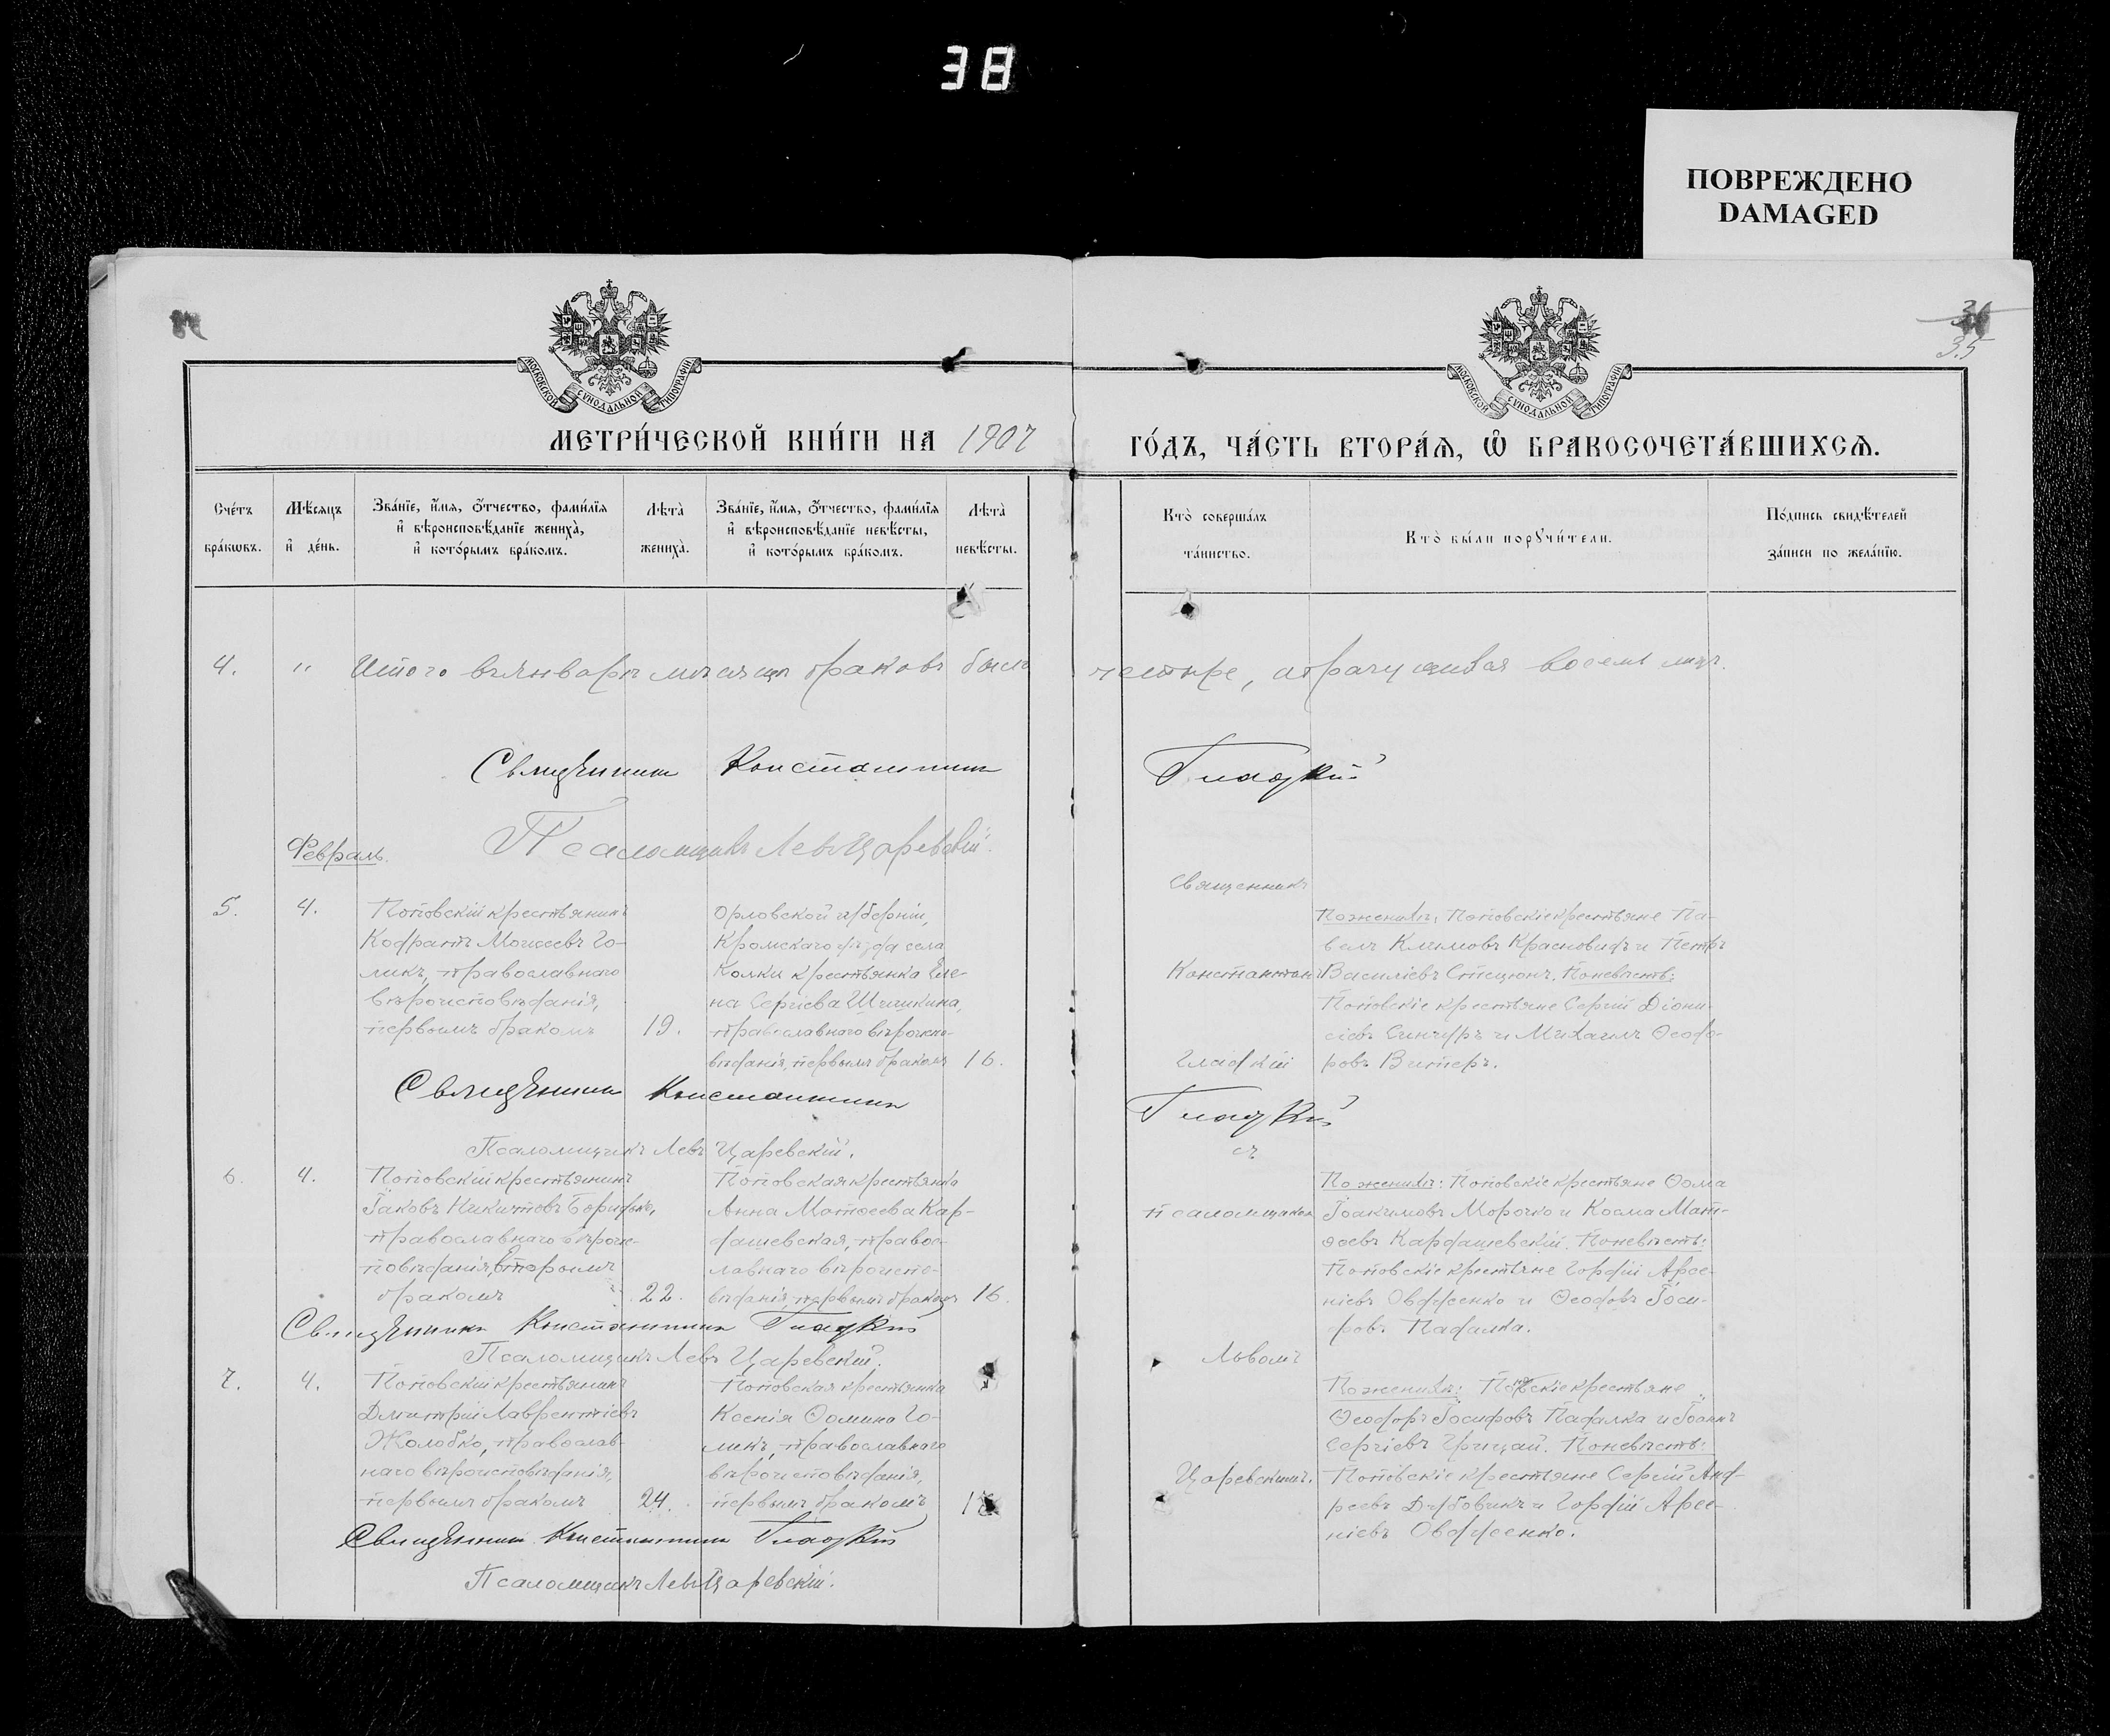 38
ПОВРЕЖДЕНО
DAMAGED
36
35
МОСКОВСКОЙ СѴНОДАЛЬНОЙ ТИПОГРАФІИ
МОСКОВСКОЙ СѴНОДАЛЬНОЙ ТИПОГРАФІИ
МЕТРИ́ЧЕСКОЙ КНИ́ГИ НА 1907 ГО́ДЪ, ЧА́СТЬ ВТОРА́Ѧ, Ѽ БРАКОСОЧЕТА́ВШИХСѦ.
Сче́тъ бра́кѡвъ.
Мѣ́сяцъ и҆ де́нь.
Зва́нїе, и҆́мя, ѻ҆́тчество, фами́лїя и҆ вѣроисповѣ́данїе жениха̀, и҆ кото́рымъ бра́комъ.
Лѣта̀ жениха̀.
Зва́нїе, и҆́мя, ѻ҆́тчество, фами́лїя и҆ вѣроисповѣ́данїе невѣ́сты, и҆ кото́рымъ бра́комъ.
Лѣта̀ невѣ́сты.
Кто̀ соверша́лъ та́инство.
Кто̀ бы́ли порꙋчи́тели.
По́дпись свидѣ́телей за́писи по жела́нїю.
4. " Итого въ Январѣ мѣсяцѣ браковъ было четыре, а брачущихся восемь лицъ.
Священникъ Константинъ Гладкій
Псаломщикъ Левъ Царевскій.
Февраль.
5.
4.
Поповскій крестьянинъ
Кодратъ Моисеевъ Го-
ликъ, православнаго
вѣроисповѣданія,
первымъ бракомъ
19.
Орловской губерніи,
Кромскаго уѣзда села
Колки крестьянка Еле-
на Сергіева Шишкина,
православнаго вѣроиспо-
вѣданія, первымъ бракомъ
16.
Священникъ
Константинъ
Гладкій
По женихѣ: Поповскіе крестьяне Па-
велъ Климовъ Красновидъ и Петръ
Василіевъ Стецюнъ. По невѣстѣ:
Поповскіе крестьяне Сергій Діони-
сіевъ Синчуръ и Михаилъ Ѳеодо-
ровъ Витеръ.
Священникъ Константинъ Гладкій
Псаломщикъ Левъ Царевскій.
6.
4.
Поповскій крестьянинъ
Іаковъ Никитовъ
православнаго вѣроис-
повѣданія, вторымъ
бракомъ
22.
Поповская крестьянка
Анна Матѳеева Кар-
дашевская, правос-
лавнаго вѣроиспо-
вѣданія, первымъ бракомъ
16.
съ
псаломщикомъ
По женихѣ: Поповскіе крестьяне Ѳома
Іоакимовъ Морочко и Косма Мат-
ѳеевъ Кардашевскій. По невѣстѣ:
Поповскіе крестьяне Гордій Арсе-
ніевъ Овдѣенко и Ѳеодоръ Іоси-
фовъ Падалка.
Священникъ Константинъ Гладкій
Псаломщикъ Левъ Царевскій.
7.
4.
Поповскій крестьянинъ
Дмитрій Лаврентіевъ
Жолобко, православ-
наго вѣроисповѣданія,
первымъ бракомъ
24.
Поповская крестьянка
Ксенія Ѳомина Го-
ликъ, православнаго
вѣроисповѣданія,
первымъ бракомъ
Львомъ
Царевскимъ.
По женихѣ: Поповскіе крестьяне
Ѳеодоръ Іосифовъ Падалка и Іоаннъ
Сергіевъ Грицай. По невѣстѣ:
Поповскіе крестьяне Сергій Анд-
реевъ Дубовикъ и Гордій Арсе-
ніевъ Овдѣенко.
Священникъ Константинъ Гладкій
Псаломщикъ Левъ Царевскій.